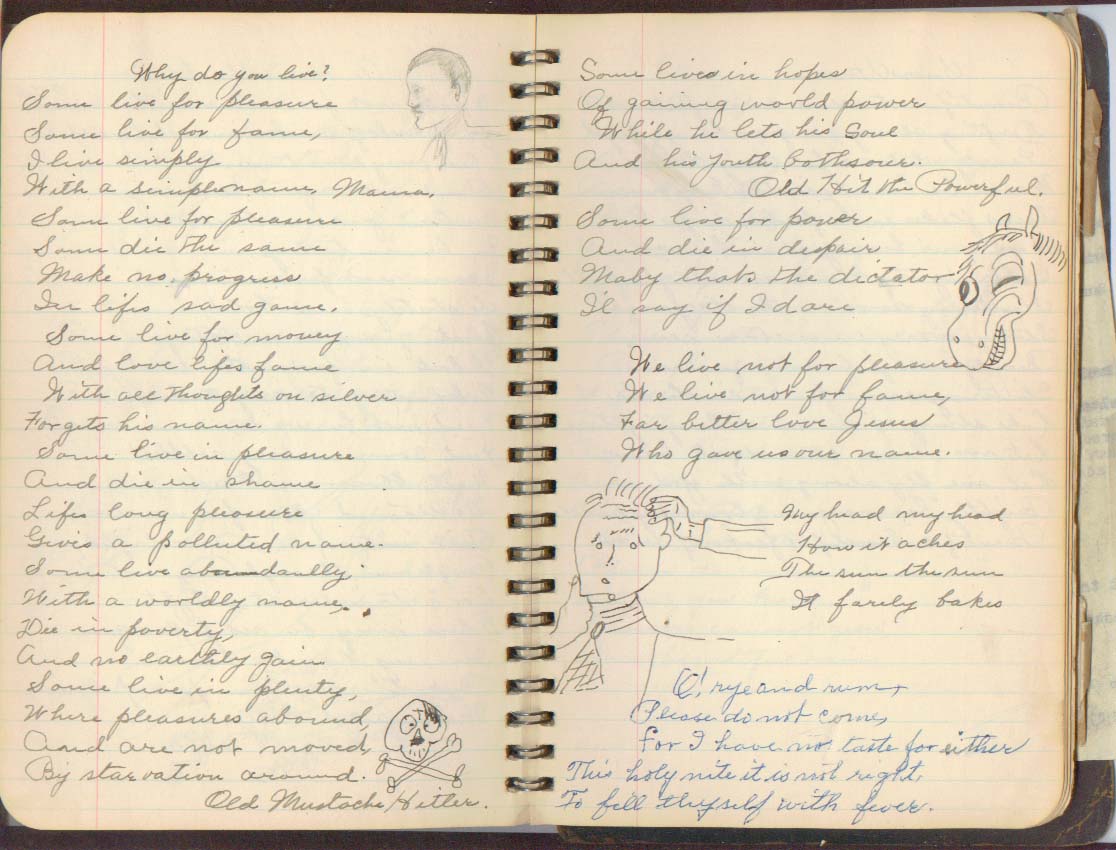 Why do you live?
Some live for pleasure
Some live for fame,
I live simply
With a simple name. Mama.
Some live for pleasure
Some die the same
Make no progress
In lifes sad game.
Some live for money
And love lifes fame
With all thoughts on silver
Forgets his name.
Some live in pleasure
And die in shame
Lifes long pleasure
Gives a polluted name.
Some live abundantly
With a worldly name,
Die in poverty,
And no earthly gain
Some live in plenty,
Where pleasures abound,
And are not moved,
By starvation around.
Old Mustache, Hitler.
Some lives in hopes
Of gaining world power
While he lets his Soul
And his youth both sour.
Old Hit the Powerful.
Some live for power
And die in despair
Maby thats the dictator
I'l say if I dare
We live not for pleasure
We live not for fame,
Far better love Jesus
Who gave us our name.
My head my head
How it aches
The sun the sun
It farely bakes
O! rye and rum,
Please do not come,
For I have no taste for either
This holy nite it is not right,
To fill thyself with fever.